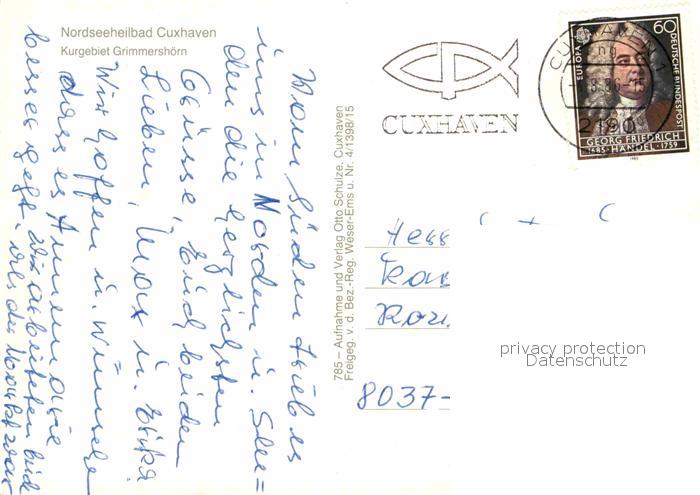 Nordseeheilbad Cuxhaven
Kurgebiet Grimmershörn
Vom Süden trieb es
uns in Norden u. Sen=
den die herzlichsten
Grüsse, Euch beiden
Lieben, Max u. Erika
Wir hoffen u. wünschen
dass es Annemarie
besser geht,
785 – Aufnahme und Verlag Otto Schulze, Cuxhaven
Freigeg. v. d. Bez.-Reg. Weser-Ems u. Nr. 4/1398/15
CUXHAVEN
CUXHAVEN 1
2190
EUROPA
60
DEUTSCHE BUNDESPOST
GEORG FRIEDRICH
1685 · HÄNDEL · 1759
1985
8037-
privacy protection
Datenschutz